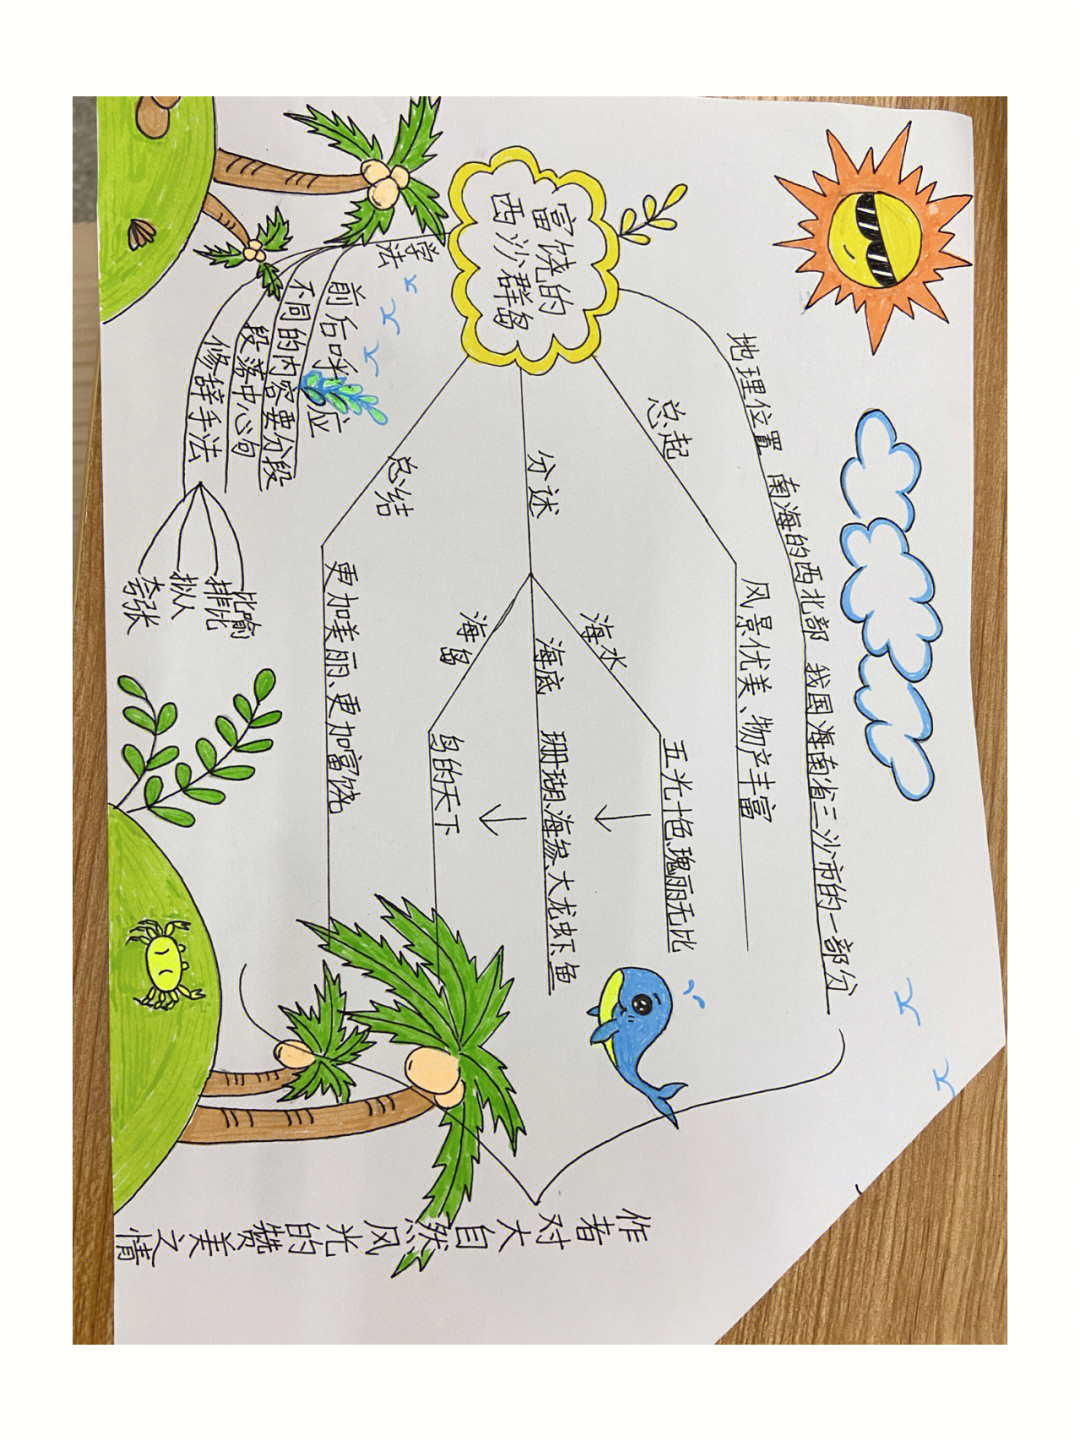 富饶的
西沙群岛
地理位置 南海的西北部 我国海南省三沙市的一部分
总起
风景优美、物产丰富
分述
海水
五光十色、瑰丽无比
海底
珊瑚、海参、大龙虾、鱼
海岛
鸟的天下
总结
更加美丽、更加富饶
学法
前后呼应
不同的内容要分段
段落中心句
修辞手法
比喻
排比
拟人
夸张
作者对大自然风光的赞美之情